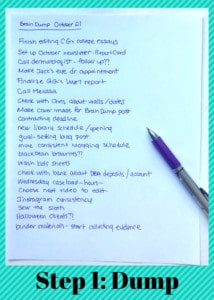 Brain Dump October 21
Finish editing CG's college essays
Set up October newsletter - Stout Card
Call dermatologist - follow up??
Make Jack's eye dr. appointment
Finalize GiGi's short report
Call Melissa
Check with Chris about walls/dates
Make cover image for Brain Dump post
Contracting deadline
new library schedule/opening
goal-setting blog post
more consistent workping schedule
black bean brownies??
wash kids sheets
Check with bank about DBA deposits/account
Wednesday case load - hours
Choose next video to edit
Instagram consistency
Sew the sloth
Halloween treats??
binder materials - start collecting evidence
Step 1: Dump